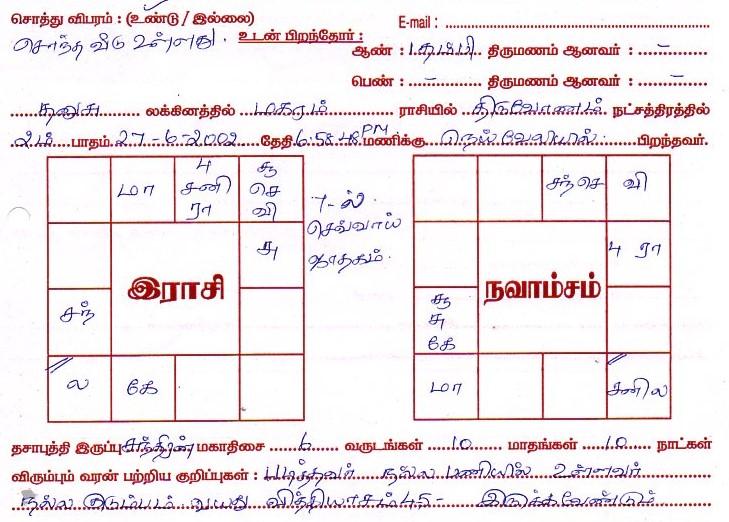 சொத்து விபரம் : (உண்டு / இல்லை)
E-mail :
சொந்த வீடு உள்ளது. உடன் பிறந்தோர் :
ஆண் : 1 தம்பி திருமணம் ஆனவர் : –
பெண் : – திருமணம் ஆனவர் : –
தனுசு லக்கினத்தில் மகரம் ராசியில் திருவோணம் நட்சத்திரத்தில்
2ம் பாதம் 27-6-2002 தேதி 6.58.48 PM மணிக்கு நெய்வேலியில் பிறந்தவர்.
மா
4 சனி ரா
சூ செ வி
சு
சந்
ல
கே
இராசி
7-ல்
செவ்வாய்
ஜாதகம்.
சந் செ
வி
4 ரா
சூ சு கே
மா
சனி ல
நவாம்சம்
தசாபுத்தி இருப்பு சந்திரன் மகாதிசை 6 வருடங்கள் 10 மாதங்கள் 10 நாட்கள்
விரும்பும் வரன் பற்றிய குறிப்புகள் : படித்தவர் நல்ல பணியில் உள்ளவர்
நல்ல குடும்பம் வயது வித்தியாசம் 4 5 - இருக்கவேண்டும்